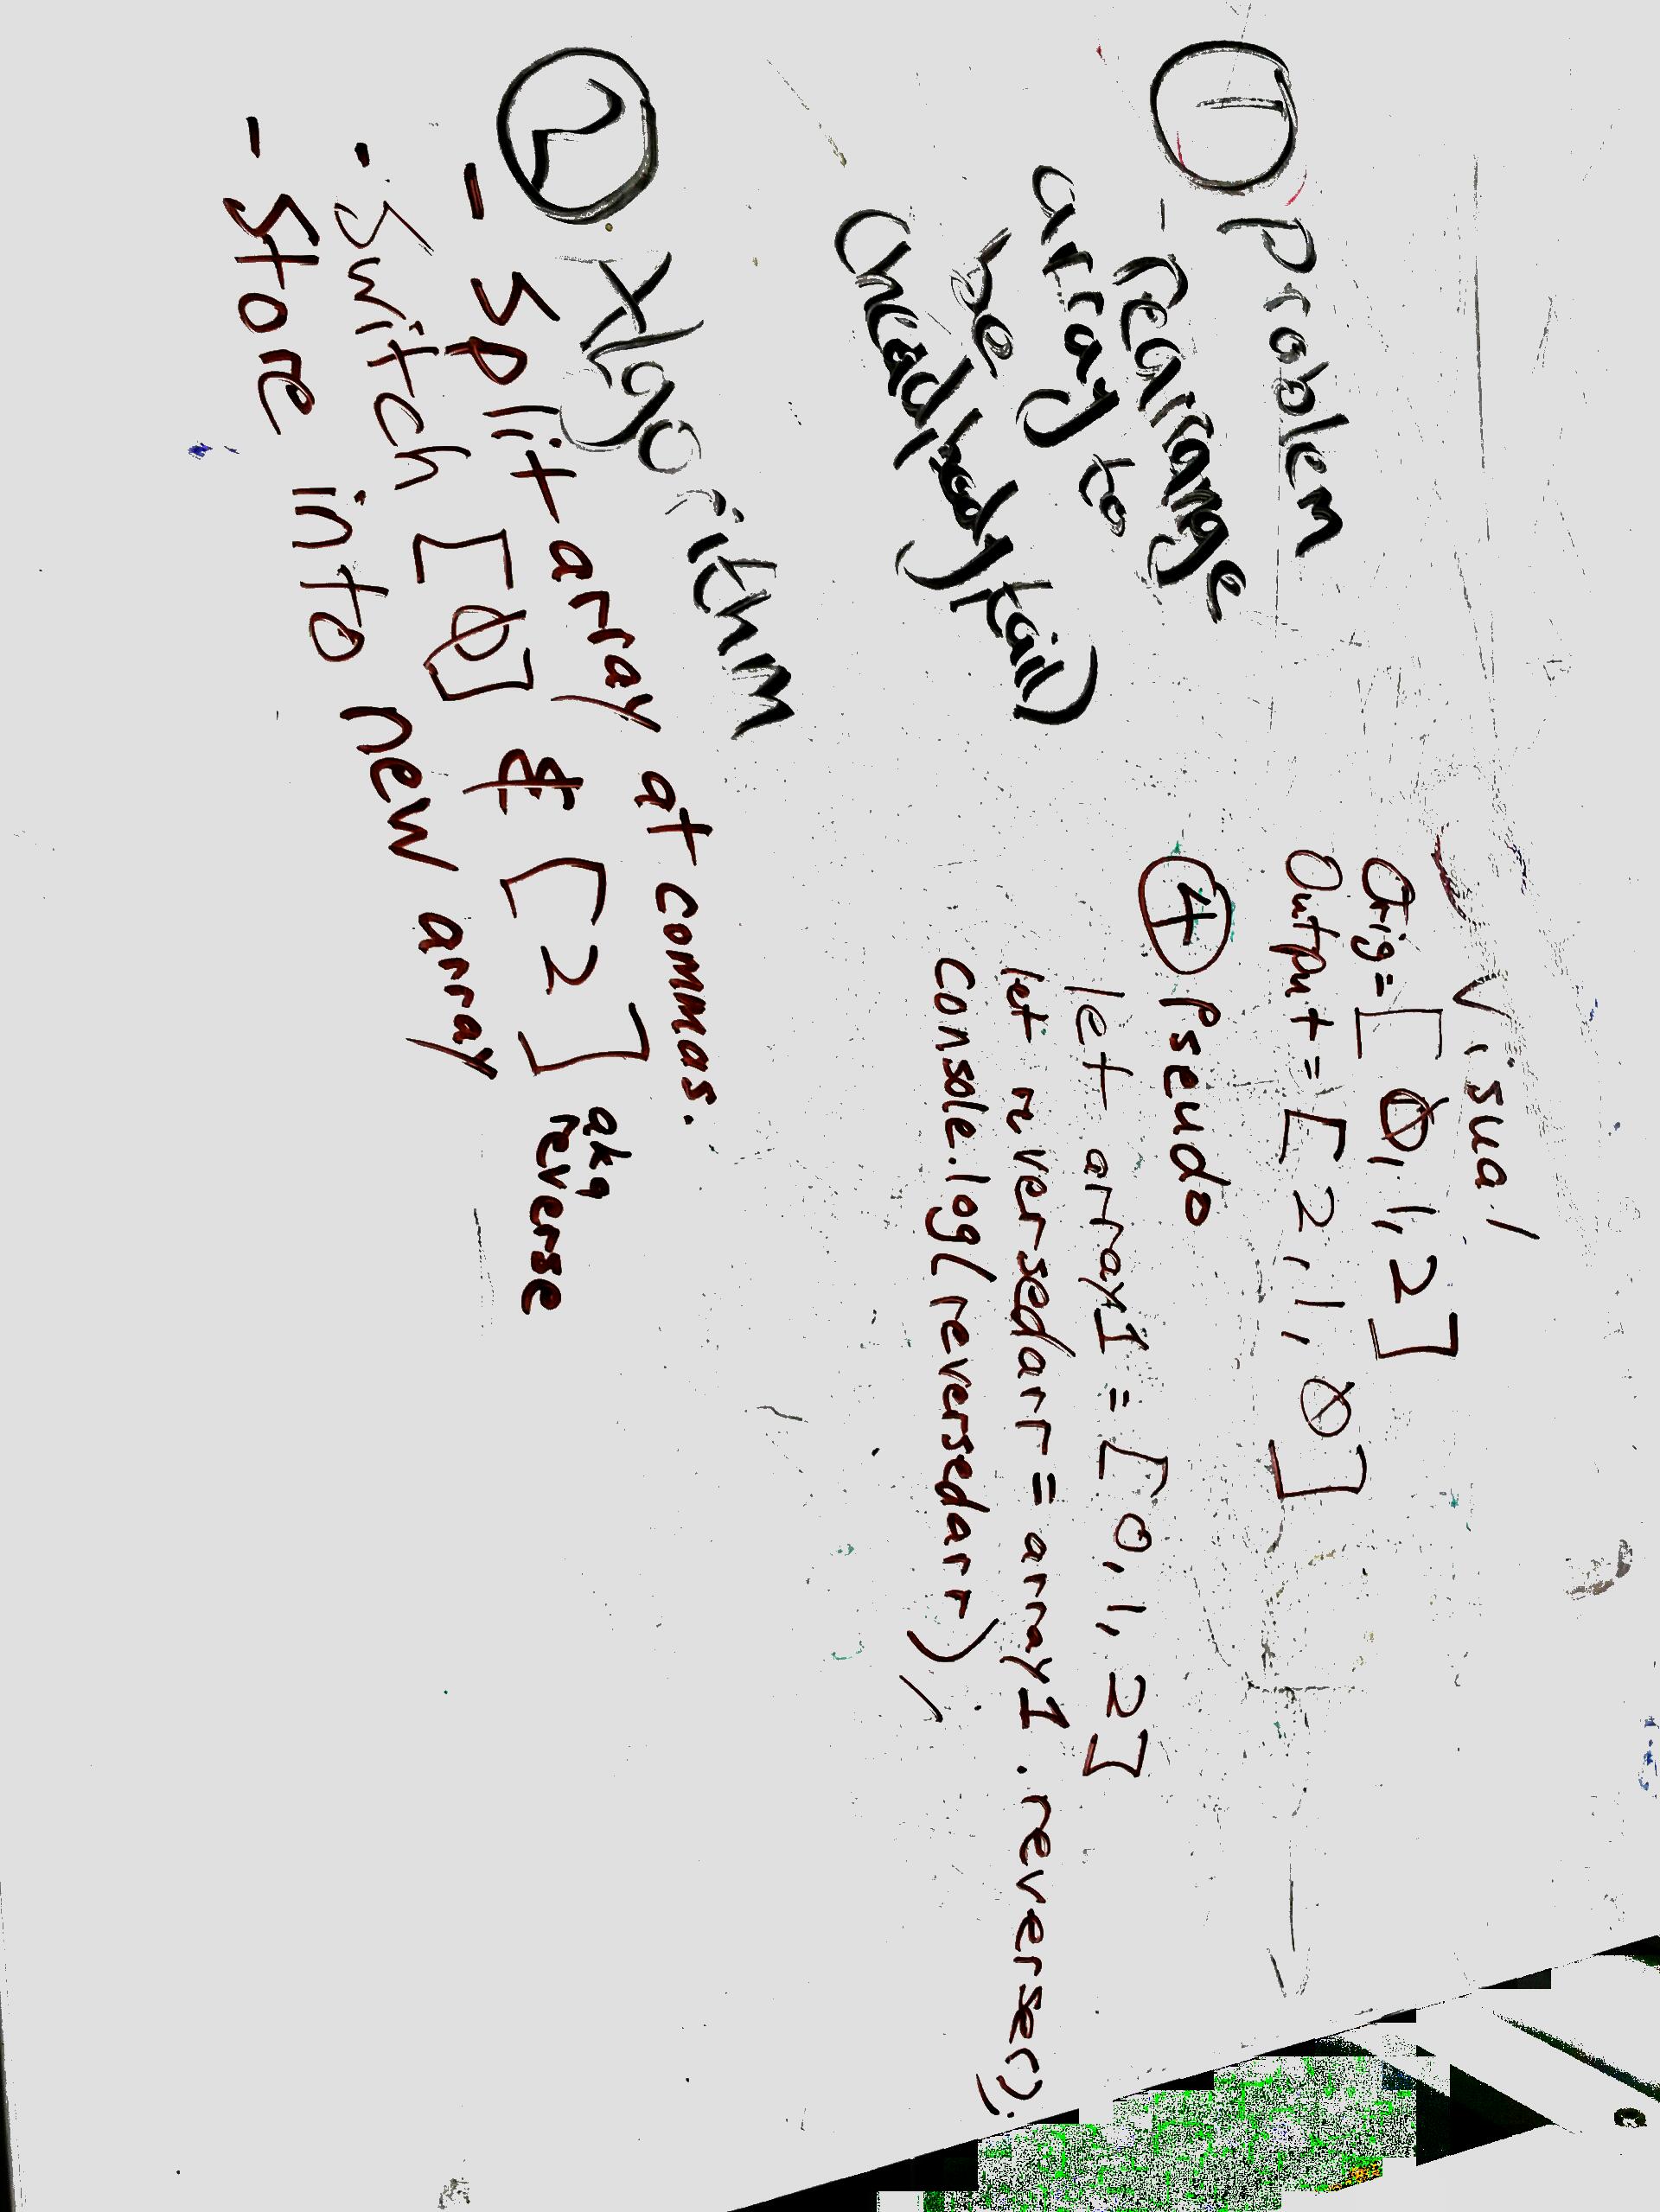 ① Problem
- Rearrange
array to
be
(head, body, tail)
② Algorithm
- Split array at commas.
- Switch [0] & [2] aka reverse
- Store into new array
Visual
Orig = [0, 1, 2]
Output = [2, 1, 0]
④ Pseudo
let array1 = [0, 1, 2]
let reversedarr = array1.reverse();
console.log(reversedarr);